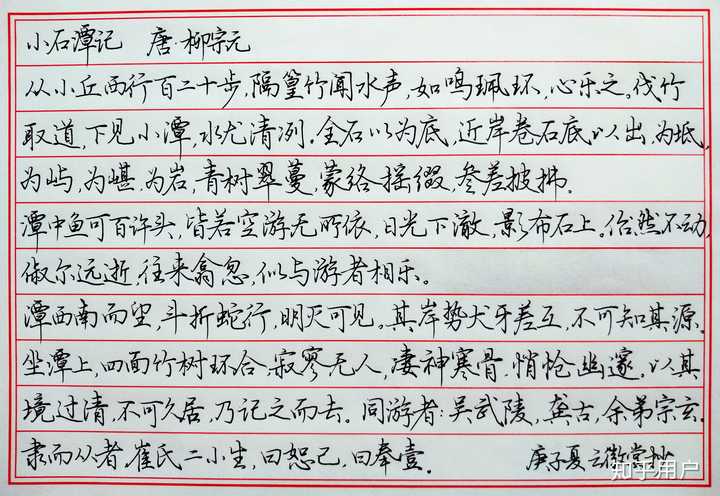 小石潭记 唐·柳宗元
从小丘西行百二十步,隔篁竹闻水声,如鸣珮环,心乐之。伐竹
取道,下见小潭,水尤清冽.全石以为底,近岸卷石底以出,为坻,
为屿,为嵁,为岩,青树翠蔓,蒙络摇缀,参差披拂.
潭中鱼可百许头,皆若空游无所依,日光下澈,影布石上。佁然不动,
俶尔远逝,往来翕忽,似与游者相乐。
潭西南而望,斗折蛇行,明灭可见,其岸势犬牙差互,不可知其源.
坐潭上,四面竹树环合,寂寥无人,凄神寒骨,悄怆幽邃.以其
境过清,不可久居,乃记之而去。同游者:吴武陵,龚古,余弟宗玄.
隶而从者,崔氏二小生,曰恕己,曰奉壹.
庚子夏云微堂抄
知乎用户